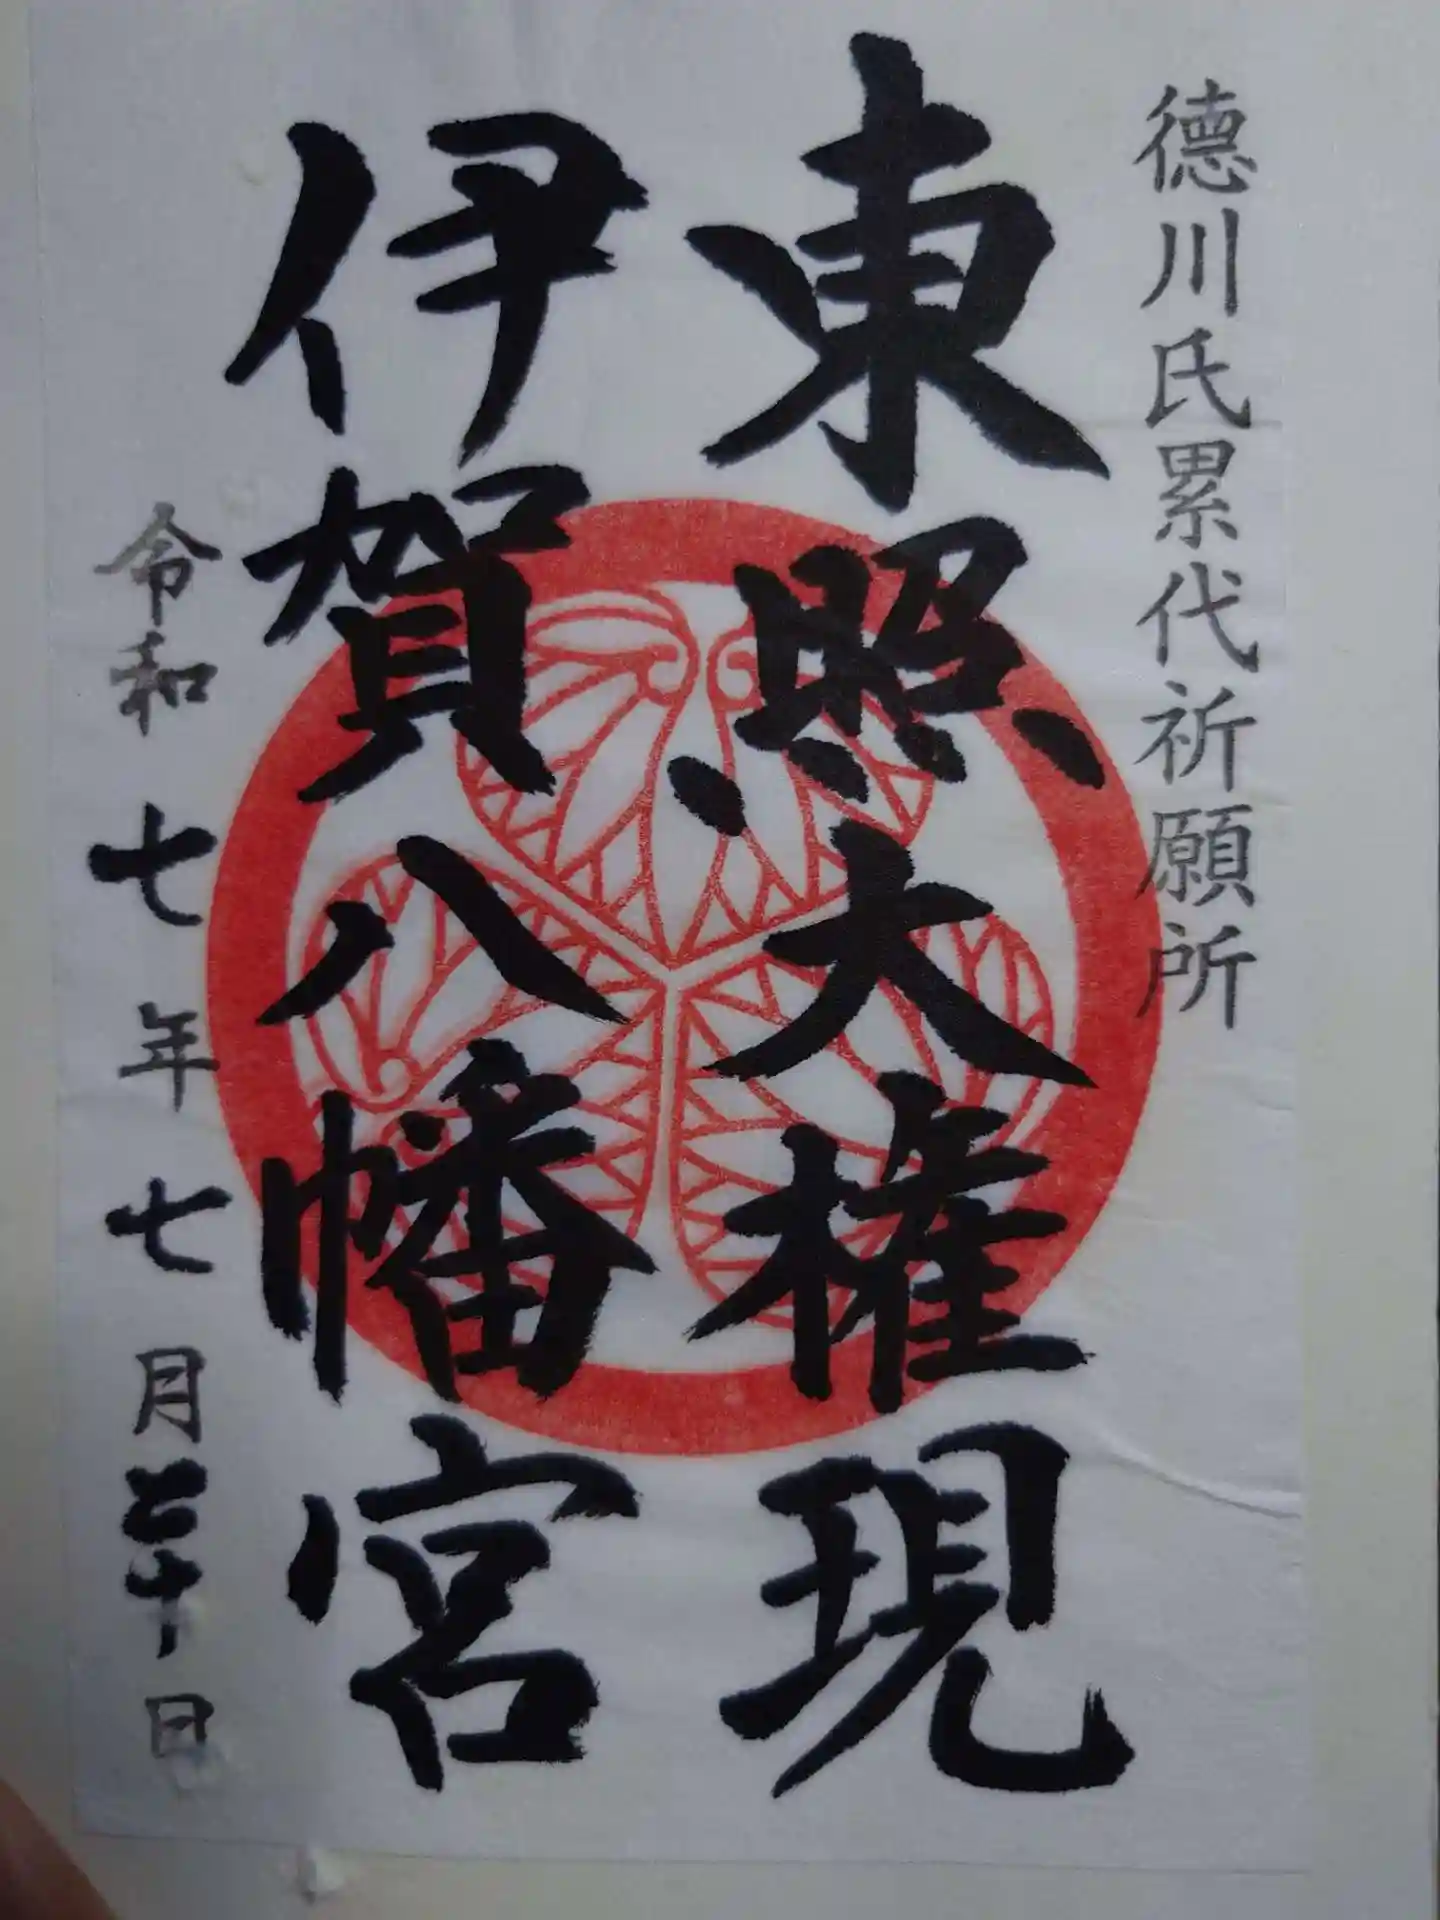 徳川氏累代祈願所
東照大権現
伊賀八幡宮
令和七年七月三十日